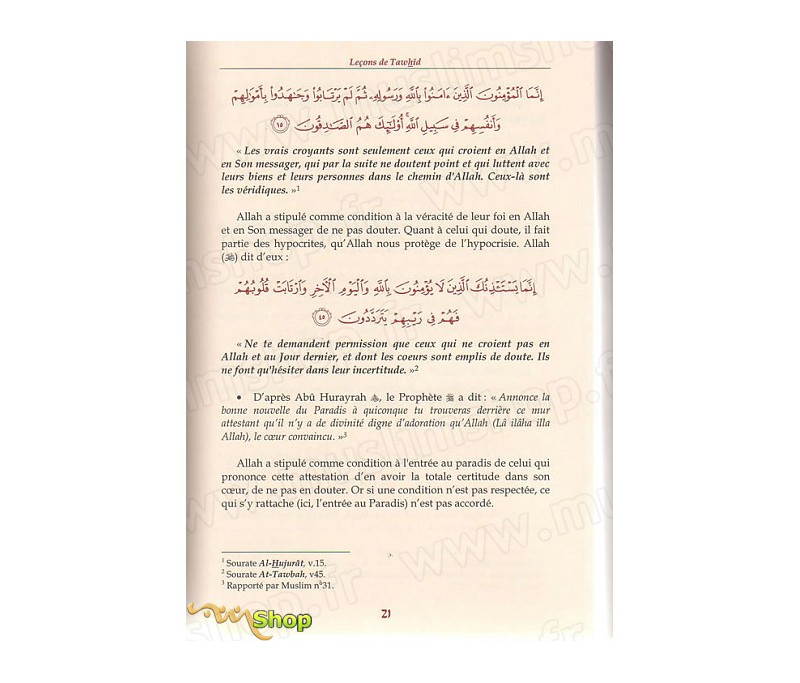 Leçons de Tawhid
إِنَّمَا ٱلْمُؤْمِنُونَ ٱلَّذِينَ ءَامَنُوا۟ بِٱللَّهِ وَرَسُولِهِۦ ثُمَّ لَمْ يَرْتَابُوا۟ وَجَٰهَدُوا۟ بِأَمْوَٰلِهِمْ
وَأَنفُسِهِمْ فِى سَبِيلِ ٱللَّهِ ۚ أُو۟لَٰٓئِكَ هُمُ ٱلصَّٰدِقُونَ ١٥
« Les vrais croyants sont seulement ceux qui croient en Allah et
en Son messager, qui par la suite ne doutent point et qui luttent avec
leurs biens et leurs personnes dans le chemin d'Allah. Ceux-là sont
les véridiques. »1
Allah a stipulé comme condition à la véracité de leur foi en Allah
et en Son messager de ne pas douter. Quant à celui qui doute, il fait
partie des hypocrites, qu'Allah nous protège de l'hypocrisie. Allah
(ﷻ) dit d'eux :
إِنَّمَا يَسْتَـْٔذِنُكَ ٱلَّذِينَ لَا يُؤْمِنُونَ بِٱللَّهِ وَٱلْيَوْمِ ٱلْءَاخِرِ وَٱرْتَابَتْ قُلُوبُهُمْ
فَهُمْ فِى رَيْبِهِمْ يَتَرَدَّدُونَ ٤٥
« Ne te demandent permission que ceux qui ne croient pas en
Allah et au Jour dernier, et dont les coeurs sont emplis de doute. Ils
ne font qu'hésiter dans leur incertitude. »2
• D'après Abû Hurayrah , le Prophète ﷺ a dit : « Annonce la
bonne nouvelle du Paradis à quiconque tu trouveras derrière ce mur
attestant qu'il n'y a de divinité digne d'adoration qu'Allah (Lâ ilâha illa
Allah), le cœur convaincu. »3
Allah a stipulé comme condition à l'entrée au paradis de celui qui
prononce cette attestation d'en avoir la totale certitude dans son
cœur, de ne pas en douter. Or si une condition n'est pas respectée, ce
qui s'y rattache (ici, l'entrée au Paradis) n'est pas accordé.
1 Sourate Al-Hujurât, v.15.
2 Sourate At-Tawbah, v45.
3 Rapporté par Muslim n°31.
21
Shop